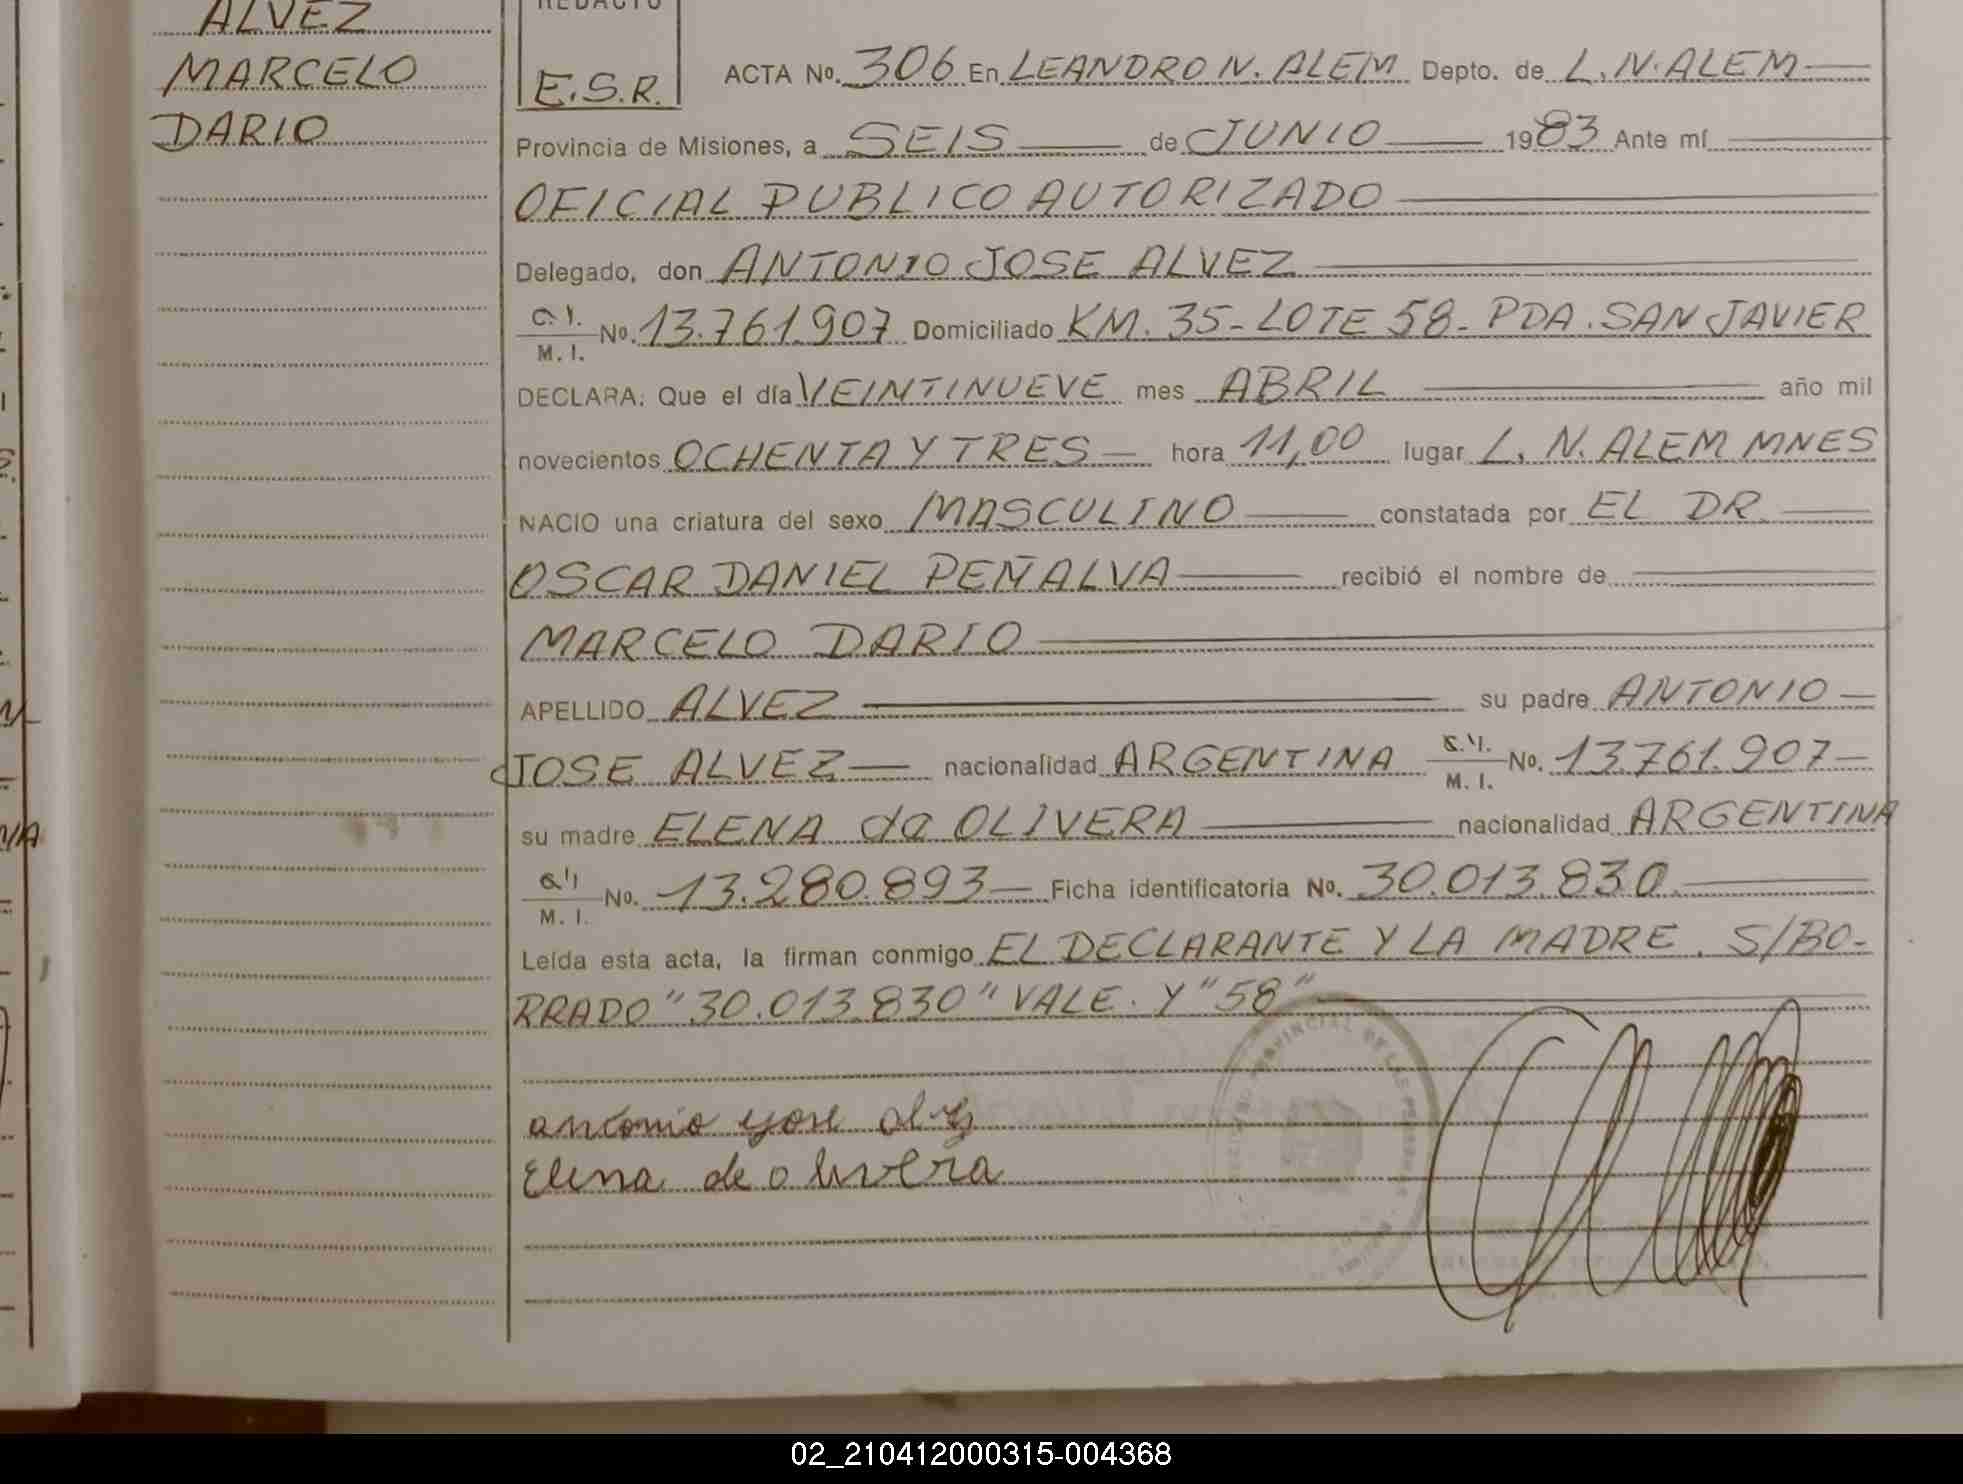 ALVEZ
MARCELO
DARIO
REDACTO
E.S.R.
ACTA Nº. 306 En LEANDRO N. ALEM Depto. de L. N. ALEM
Provincia de Misiones, a SEIS de JUNIO 1983 Ante mí
OFICIAL PUBLICO AUTORIZADO
Delegado, don ANTONIO JOSE ALVEZ
C. I. M. I. Nº. 13.761.907 Domiciliado KM. 35 - LOTE 58 - PDA. SAN JAVIER
DECLARA: Que el día VEINTINUEVE mes ABRIL año mil
novecientos OCHENTA Y TRES hora 11,00 lugar L. N. ALEM MNES
NACIO una criatura del sexo MASCULINO constatada por EL DR
OSCAR DANIEL PEÑALVA recibió el nombre de
MARCELO DARIO
APELLIDO ALVEZ su padre ANTONIO
JOSE ALVEZ nacionalidad ARGENTINA M. I. Nº. 13.761.907
su madre ELENA da OLIVERA nacionalidad ARGENTINA
M. I. Nº. 13.280.893 Ficha identificatoria Nº. 30.013.830
Leída esta acta, la firman conmigo EL DECLARANTE Y LA MADRE. S/BO-
RRADO "30.013.830" VALE. Y "58"
antonio yose
Elena de olivera
02_210412000315-004368